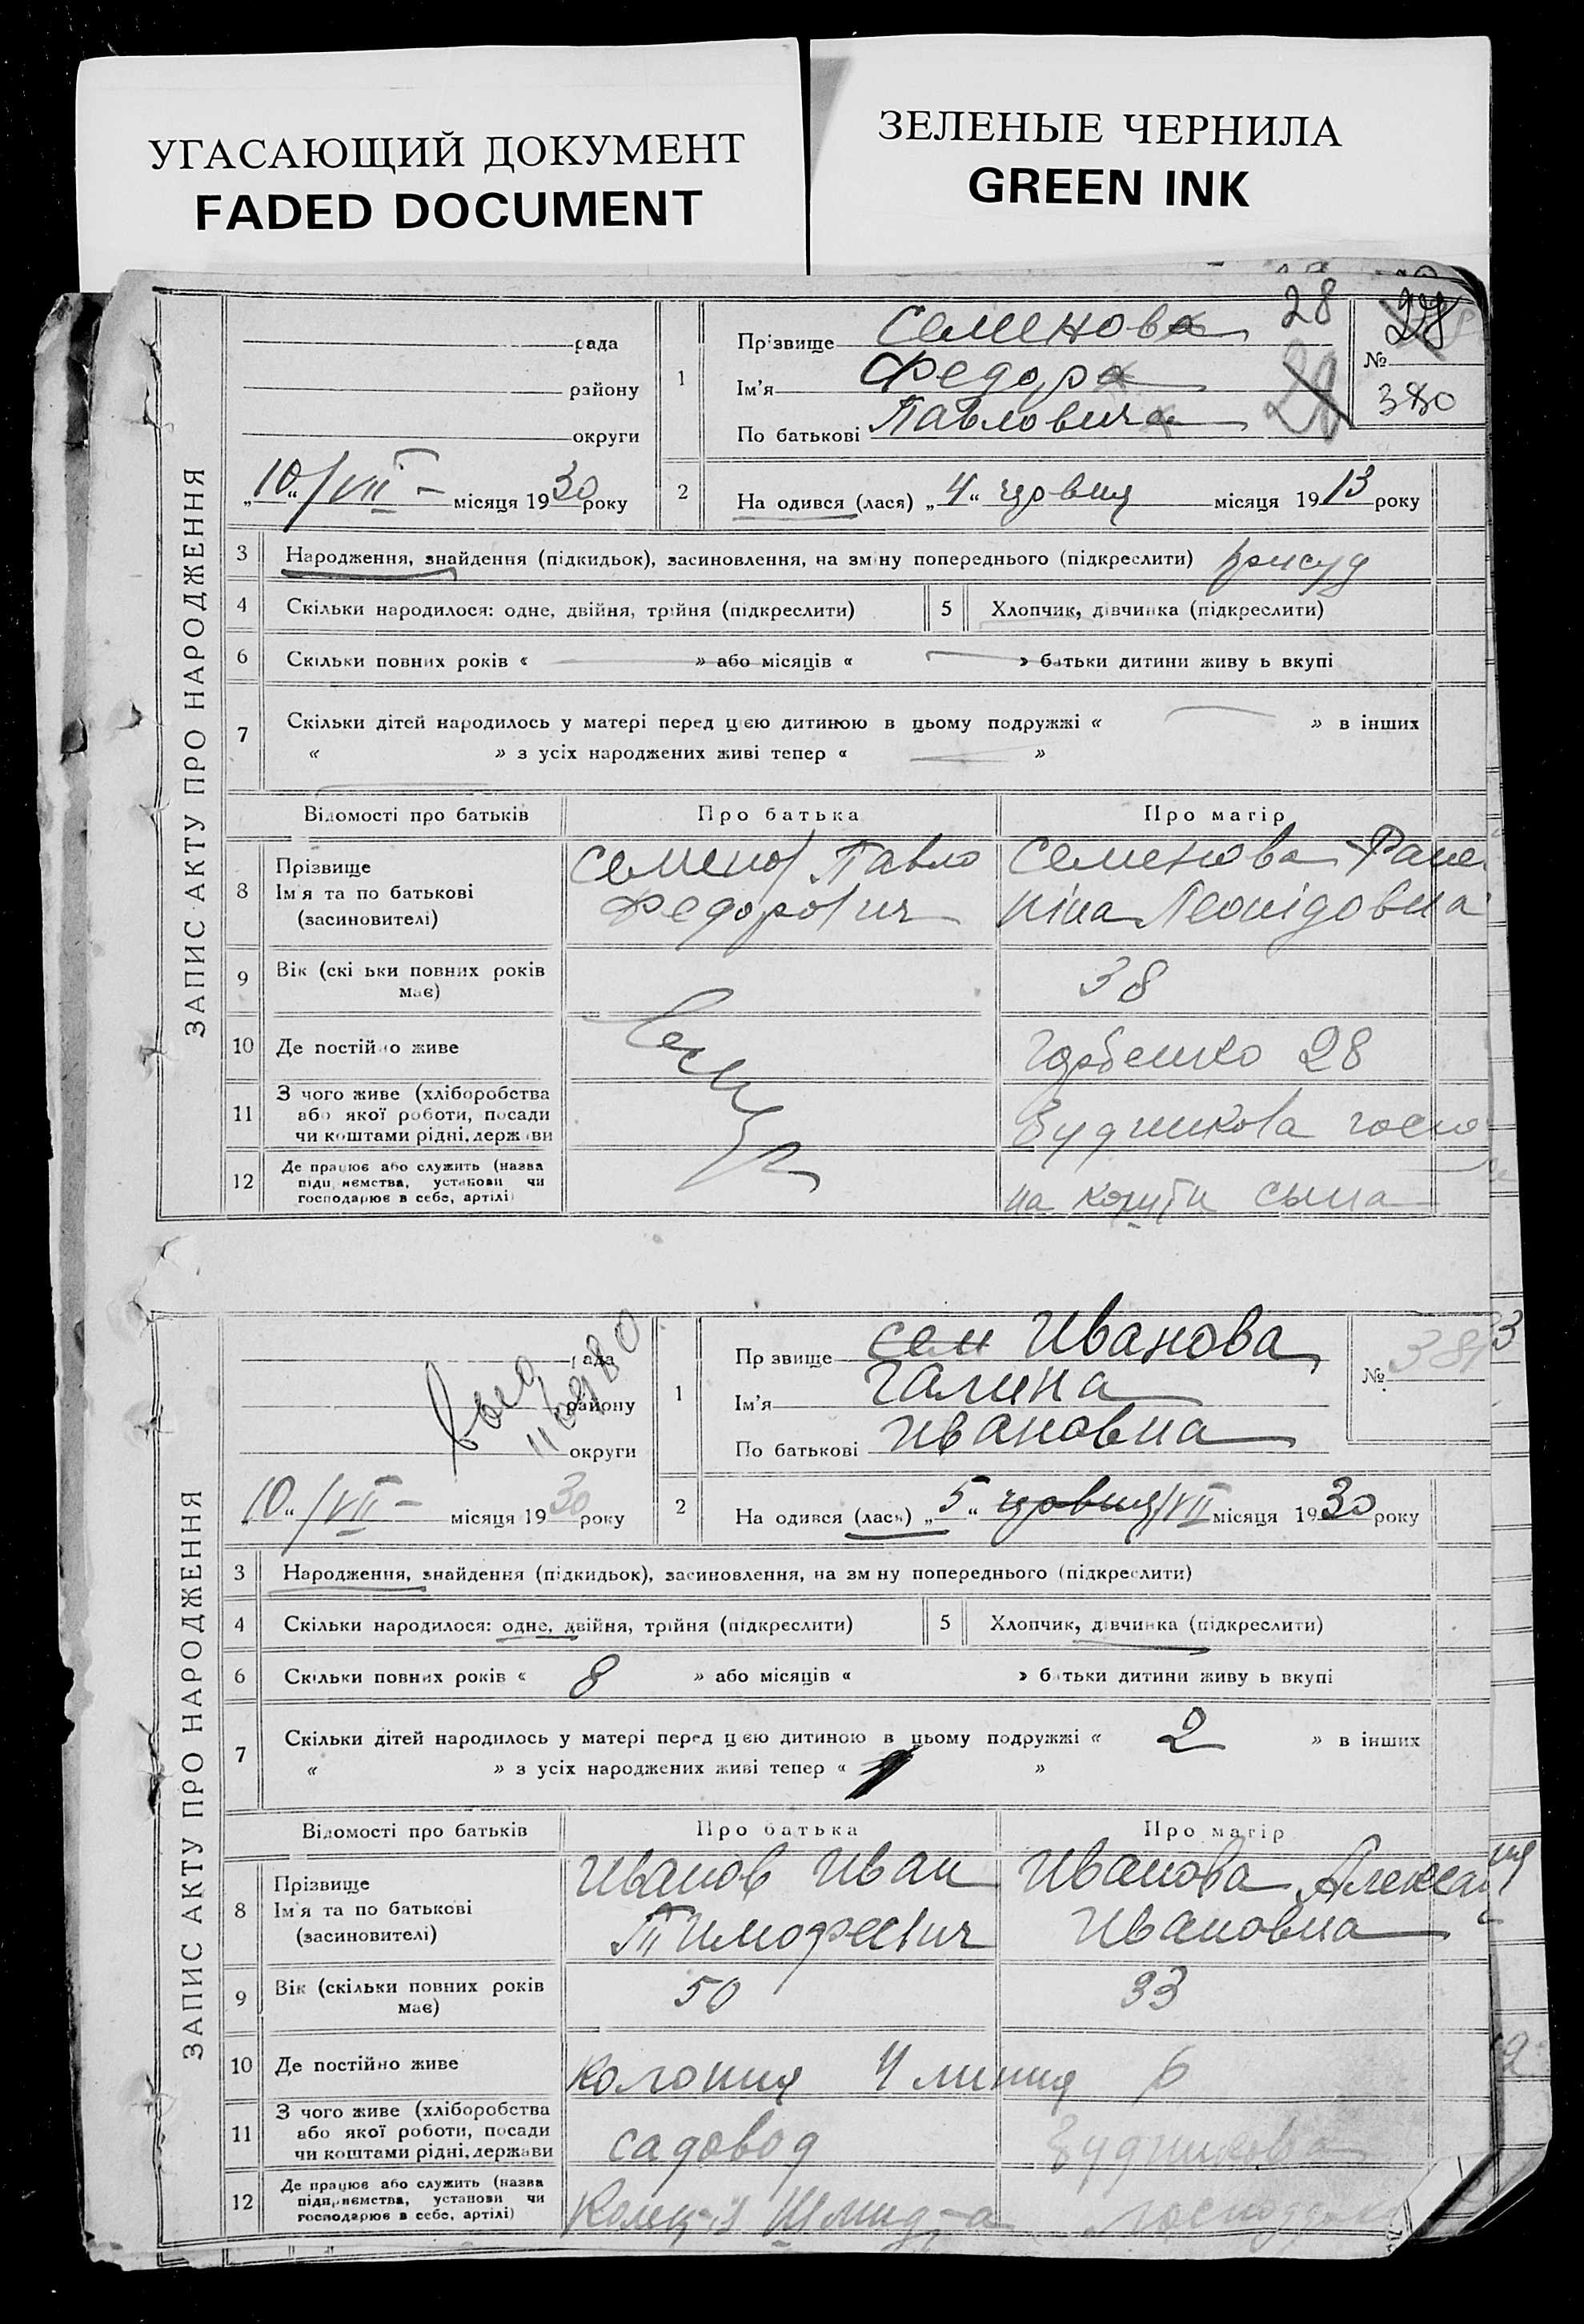 УГАСАЮЩИЙ ДОКУМЕНТ
FADED DOCUMENT
ЗЕЛЕНЫЕ ЧЕРНИЛА
GREEN INK
ЗАПИС АКТУ ПРО НАРОДЖЕННЯ
рада
району
округи
„10“/VII – місяця 1930 року
1
Прізвище Семенова 28
Ім'я Федора 28
По батькові Павловича
№ 380
2 На одився (лася) „4“ червня місяця 1913 року
3 Народження, знайдення (підкидьок), засиновлення, на зміну попереднього (підкреслити) присуд
4 Скільки народилося: одне, двійня, трійня (підкреслити) 5 Хлопчик, дівчинка (підкреслити)
6 Скільки повних років « » або місяців « » батьки дитини живу ь вкупі
7 Скільки дітей народилось у матері перед цією дитиною в цьому подружжі « » в інших
« » з усіх народжених живі тепер « »
Відомості про батьків Про батька Про матір
8 Прізвище
Ім'я та по батькові
(засиновителі)
Семенов Павло
Федорович
Семенова
Леонідовна
9 Вік (скі ьки повних років
має)
38
10 Де постійно живе
Горбенко 28
11 З чого живе (хліборобства
або якої роботи, посади
чи коштами рідні, держави
12 Де працює або служить (назва
підприємства, установи чи
господарює в себе, артілі)
на кошти сына
ЗАПИС АКТУ ПРО НАРОДЖЕННЯ
рада
району
округи
„10“/VII – місяця 1930 року
1
Пр звище сем Иванова
Ім'я Галина
По батькові Ивановна
№ 381
2 На одився (лася) „5“ червня/VII місяця 1930 року
3 Народження, знайдення (підкидьок), засиновлення, на зм ну попереднього (підкреслити)
4 Скільки народилося: одне, двійня, трійня (підкреслити) 5 Хлопчик, дівчинка (підкреслити)
6 Скільки повних років « 8 » або місяців « » батьки дитини живу ь вкупі
7 Скільки дітей народилось у матері перед цією дитиною в цьому подружжі « 2 » в інших
« » з усіх народжених живі тепер « 1 »
Відомості про батьків Про батька Про матір
8 Прізвище
Ім'я та по батькові
(засиновителі)
Иванов Иван
Тимофеевич
Иванова Алексан
Ивановна
9 Вік (скільки повних років
має)
50 33
10 Де постійно живе
Колония 4 линия 6
11 З чого живе (хліборобства
або якої роботи, посади
чи коштами рідні, держави
садовод
12 Де працює або служить (назва
підприємства, установи чи
господарює в себе, артілі)